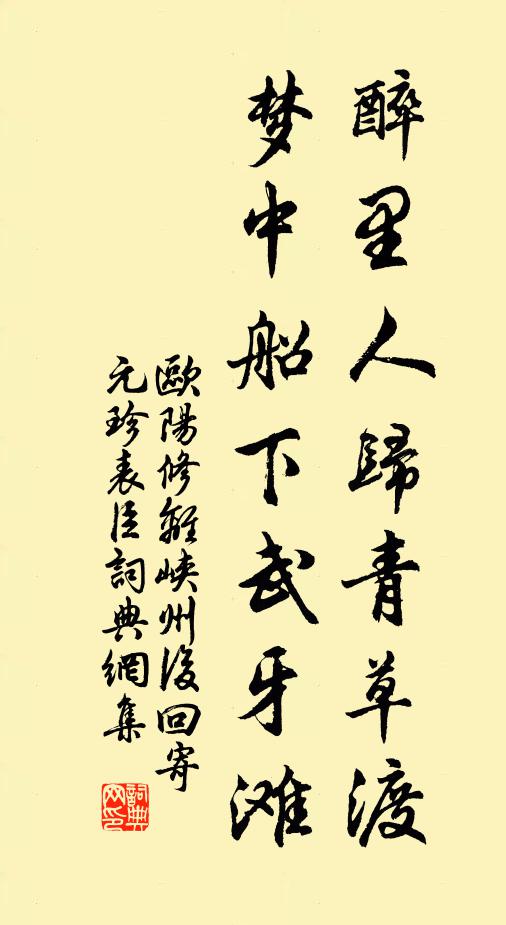 醉里人歸青草渡
梦中船下武牙滩
歐陽修離峽州後回寄
元珍表臣詞典網集
詞典
网印